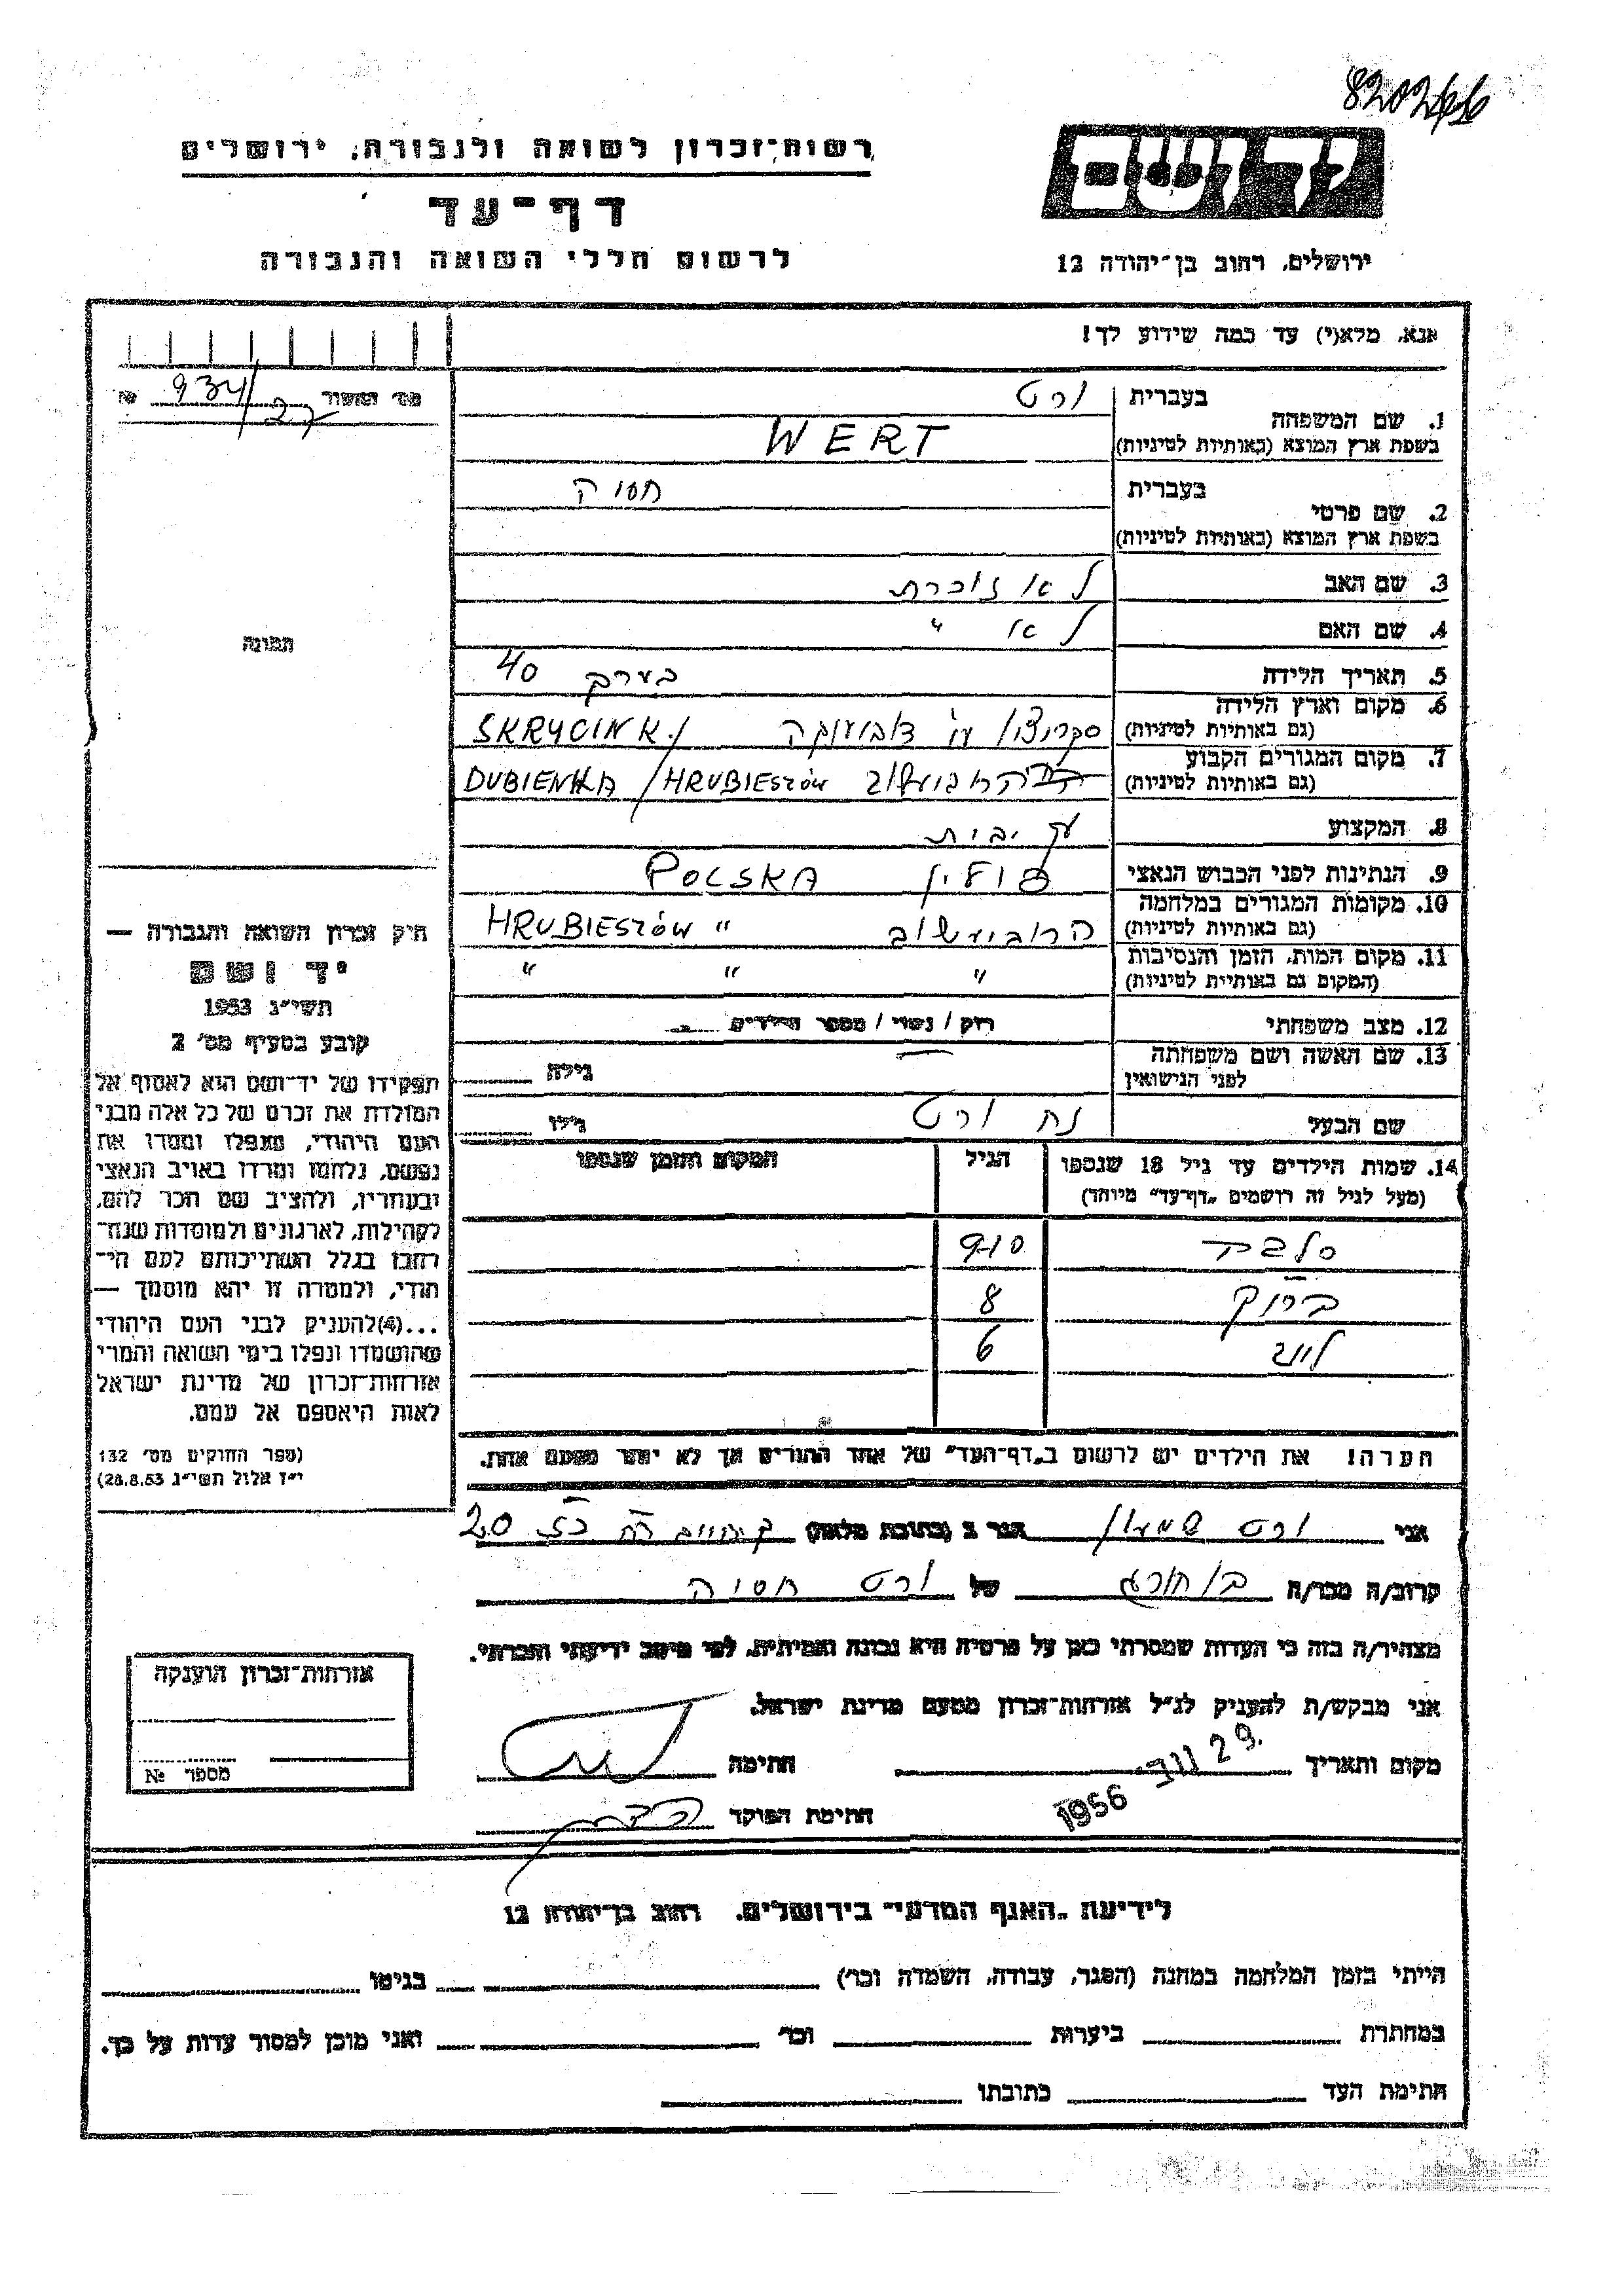 8202466
רשות־זכרון לשואה ולגבורה, ירושלים
יד ושם
דף־עד
לרשום חללי השואה והגבורה
ירושלים, רחוב בן־יהודה 12
אנא, מלא(י) עד כמה שידוע לך!
מס׳ האשור 934/27 №
בעברית ורט
1. שם המשפחה
בשפת ארץ המוצא (באותיות לטיניות) WERT
בעברית חסיה
2. שם פרטי
בשפת ארץ המוצא (באותיות לטיניות)
3. שם האב לא זוכרת
4. שם האם לא "
תמונה
5. תאריך הלידה בערך 40
6. מקום וארץ הלידה
(גם באותיות לטיניות) דובינקה SKRYCINK
7. מקום המגורים הקבוע
(גם באותיות לטיניות) הרוביעשוב DUBIENKA / HRUBIESZÓW
8. המקצוע עק׳ בית
9. הנתינות לפני הכבוש הנאצי פולין POLSKA
10. מקומות המגורים במלחמה
(גם באותיות לטיניות) הרוביעשוב " HRUBIESZÓW
11. מקום המות, הזמן והנסיבות
(המקום גם באותיות לטיניות) " " "
12. מצב משפחתי רווק / נשוי / מספר הילדים
13. שם האשה ושם משפחתה
לפני הנישואין גילה
שם הבעל נח ורט גילו
14. שמות הילדים עד גיל 18 שנספו הגיל המקום והזמן שנספו
(מעל לגיל זה רושמים „דף־עד" מיוחד)
9-10
ברוך 8
לייב 6
הערה! את הילדים יש לרשום ב„דף־העד" של אחד ההורים אך לא יותר מפעם אחת.
חוק זכרון השואה והגבורה —
יד ושם
תשי״ג 1953
קובע בסעיף מס׳ 2
תפקידו של יד־ושם הוא לאסוף אל
המולדת את זכרם של כל אלה מבני
העם היהודי, שנפלו ומסרו את
נפשם, נלחמו ומרדו באויב הנאצי
ובעוזריו, ולהציב שם וזכר להם,
לקהילות, לארגונים ולמוסדות שנח־
רבו בגלל השתייכותם לעם הי־
הודי, ולמטרה זו יהא מוסמך —
...(4)להעניק לבני העם היהודי
שהושמדו ונפלו בימי השואה והמרי
אזרחות־זכרון של מדינת ישראל
לאות היאספם אל עמם.
(ספר החוקים מס׳ 132
י״ז אלול תשי״ג 28.8.53)
אני ורט שמעון הגר ב (כתובת מלאה) ק. חיים רח׳ 20
קרוב/ה מכר/ה בן חורג של ורט חסיה
מצהיר/ה בזה כי העדות שמסרתי כאן על פרטיה היא נכונה ואמיתית, לפי מיטב ידיעתי והכרתי.
אני מבקש/ת להעניק לנ״ל אזרחות־זכרון מטעם מדינת ישראל.
מקום ותאריך 29. נוב׳ 1956 חתימה
חתימת הפוקד
אזרחות־זכרון הוענקה
מספר №
לידיעת „האגף המדעי" בירושלים, רחוב בן־יהודה 12
הייתי בזמן המלחמה במחנה (הסגר, עבודה, השמדה וכו׳) בגיטו
במחתרת ביערות וכו׳ ואני מוכן למסור עדות על כך.
חתימת העד כתובתו